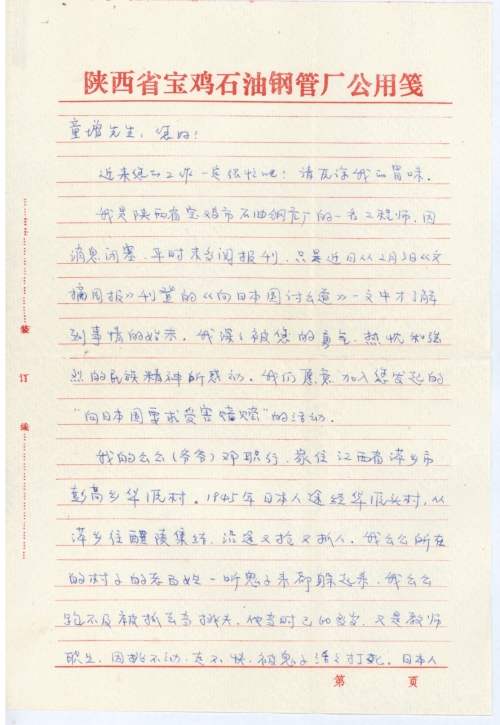 陕西省宝鸡石油钢管厂公用笺
童增先生，您好！
近来您的工作一定很忙吧！请原谅我的冒昧。
我是陕西省宝鸡市石油钢管厂的一名工程师，因
消息闭塞，平时未多阅报刊，只是近日从2月3日《文
摘周报》刊登的《向日本国讨公道》一文中才了解
到事情的始末。我深深被您的勇气、热忱和强
烈的民族精神所感动。我们愿意加入您发起的
“向日本国要求受害赔偿”的活动。
我的公公（爷爷）邓职行，家住江西省萍乡市
彭高乡华 村。1945年日本人途经华 村，从
萍乡往醴陵集结，沿途又抢又抓人。我公公所在
的村子的老百姓一听鬼子来都躲起来，我公公
跑不及被抓去当挑夫，他当时已 岁，又是教师
职业，因挑不动，走不快，被鬼子活活打死。日本人
装
订
线
第 页